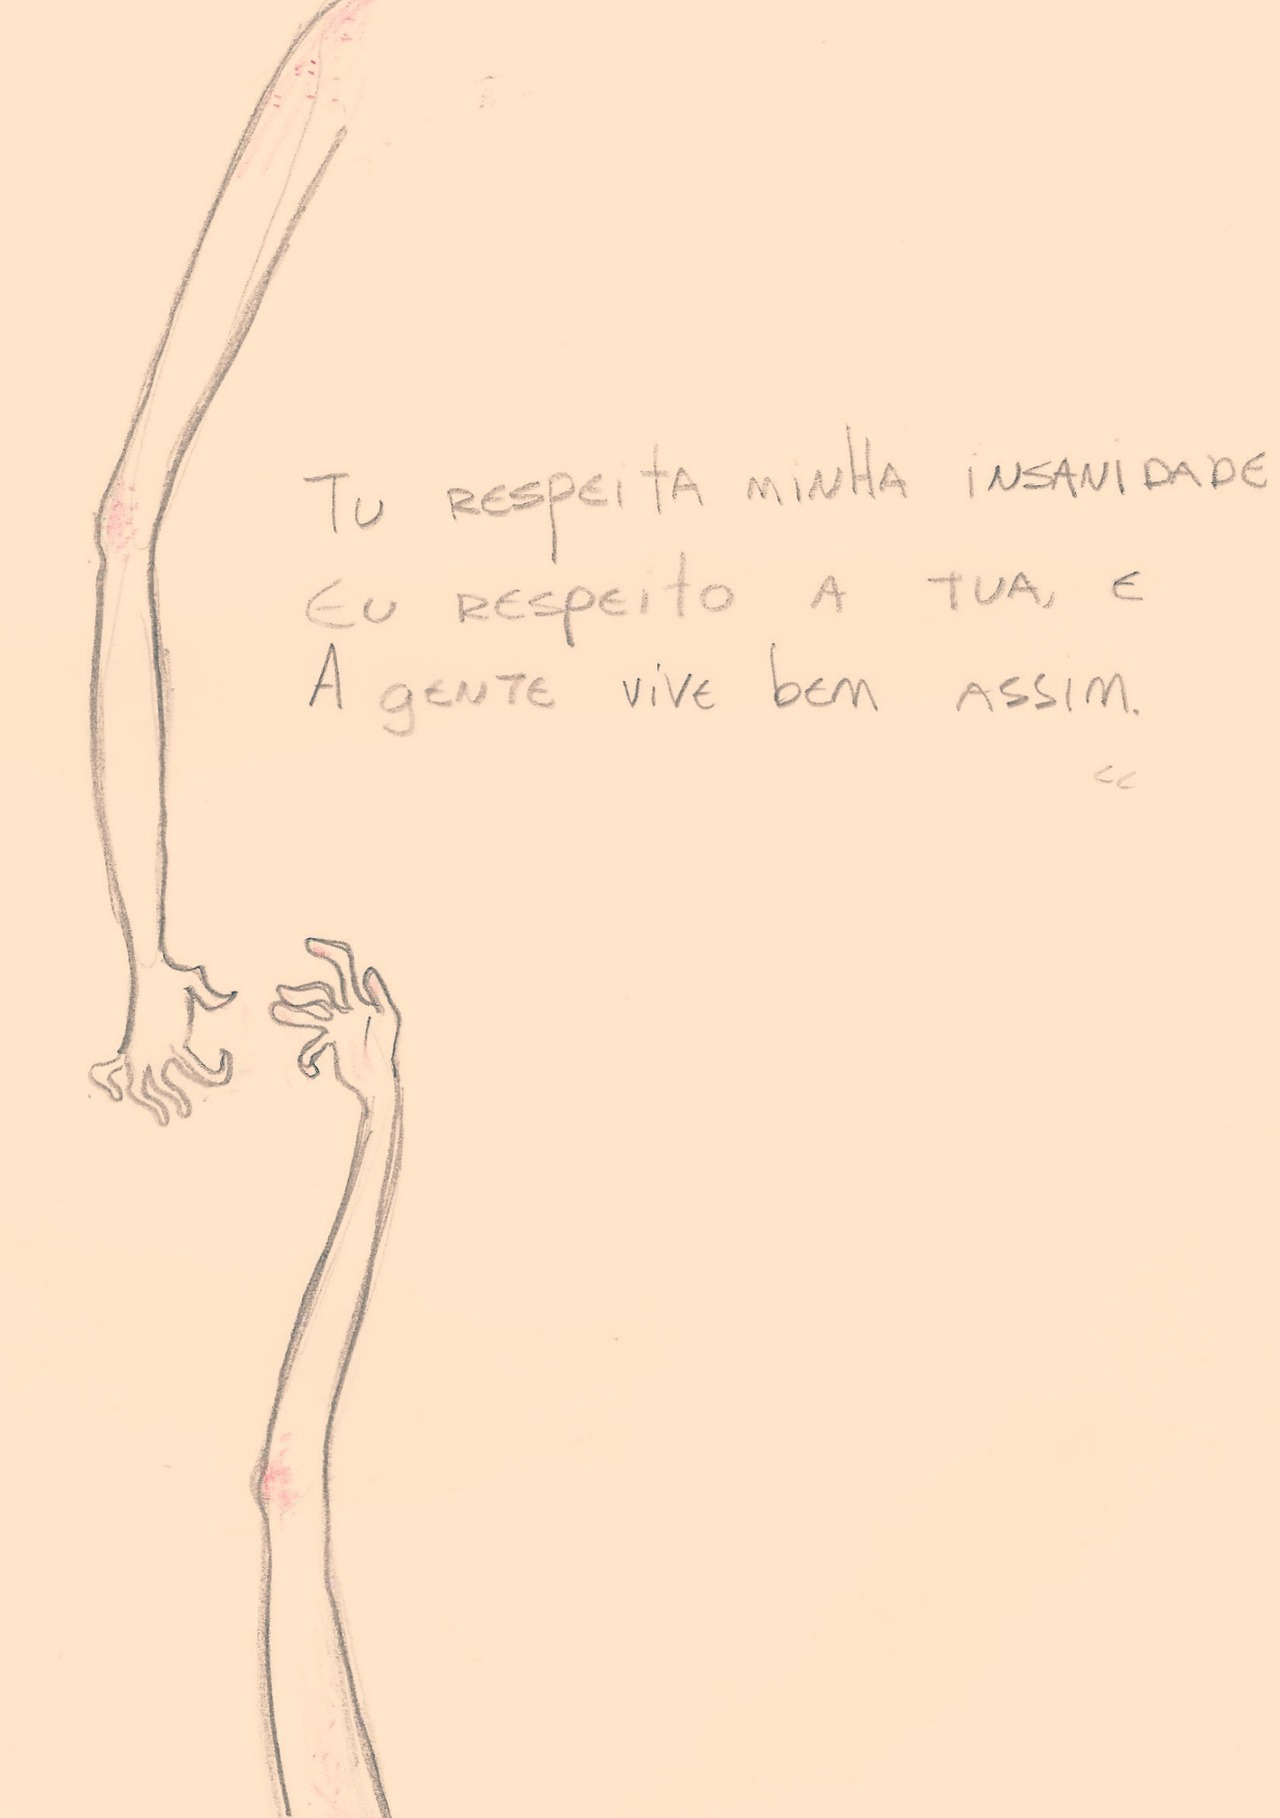 Tu RESpEitA miNHA iNSANiDADE
Eu RESpEito A TUA, E
A gENTE viVE bEm ASSim.
cc